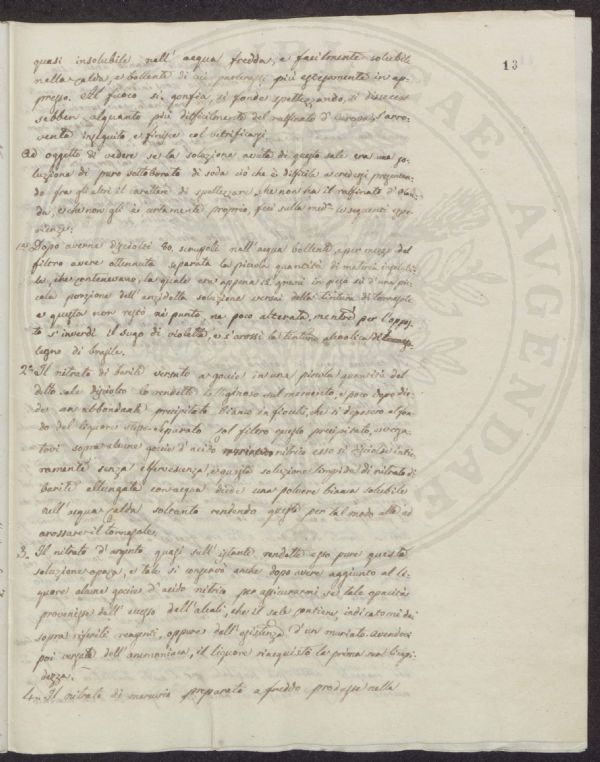 13
quasi insolubile nell' acqua fredda, e facilmente solubile
nella calda, e bollente di cui parlerassi più estesamente in ap-
presso. Al fuoco si gonfia, si fonde spettezzando, si dissecca
sebben alquanto più difficilmente del raffinato d'Europa s'arro-
venta in seguito e finisce col vetrificarsi.
Ad oggetto di vedere se la soluzione acuita di questo sale era una so-
luzione di puro sottoborato di soda ciò che è difficile a credersi presentan-
do fra gli altri il carattere di spettezzare, che non ha il raffinato d'Olan-
da, e che non gli è certamente proprio, feci sulla med.a le seguenti espe-
rienze:
1.a Dopo averne disciolti 80. scrupoli nell' acqua bollente, e per mezzo del
filtro avere ottenuta separata la piccola quantità di materia insolubi-
le, che contenevano, la quale era appena 12 grani in peso si d'una pic-
cola porzione dell' anzidetta soluzione versai della tintura di tornasole
e questa non restò nè punto, ne poco alterata, mentre per l'oppos-
to s'inverdì il sugo di violette, e s'arossì la tintura alcoolica di
legno di brasile.
2.a Il nitrato di barite versato a goccie in una piccola quantità del
detto sale disciolto lo rendette lattiginoso sul momento, e poco dopo die-
de un abbondante precipitato bianco in fiocchi, che si deposero al fon-
do del liquore separato sol filtro questo precipitato, e versa-
tovi sopra alcune goccie d'acido nitrico esso si disciolse intie-
ramente senza effervescenza, e questa soluzione limpida di nitrato di
barite allungata con acqua diede una polvere bianca solubile
nell' acqua calda soltanto rendendo questa per tal modo atta ad
arossare il tornasole.
3. Il nitrato d'argento quasi sull' istante rendette esso pure questa
soluzione opaca, e tale si conservò anche dopo avere aggiunto al li-
quore alcune goccie d'acido nitrico per assicurarmi se tale opacità
provenisse dall' eccesso dell' alcali, che il sale contiene indicatomi dai
sopra riferiti reagenti, oppure dall' esistenza d'un muriato. avendovi
poi versato dell' ammoniaca, il liquore riacquistò la prima sua limpi-
dezza.
4. Il nitrato di mercurio preparato a freddo produsse nella
AVGENDAE